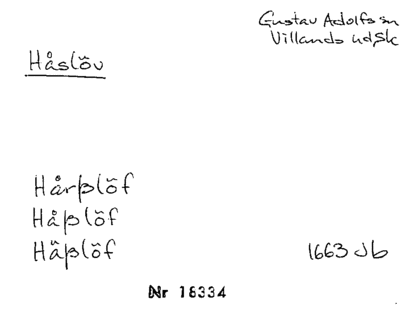 Gustav Adolfs sn
Villands hd, Sk
Håslöv
Hårßlöf
Håßlöf
Håßlöf
1663 Jb
Nr 18334